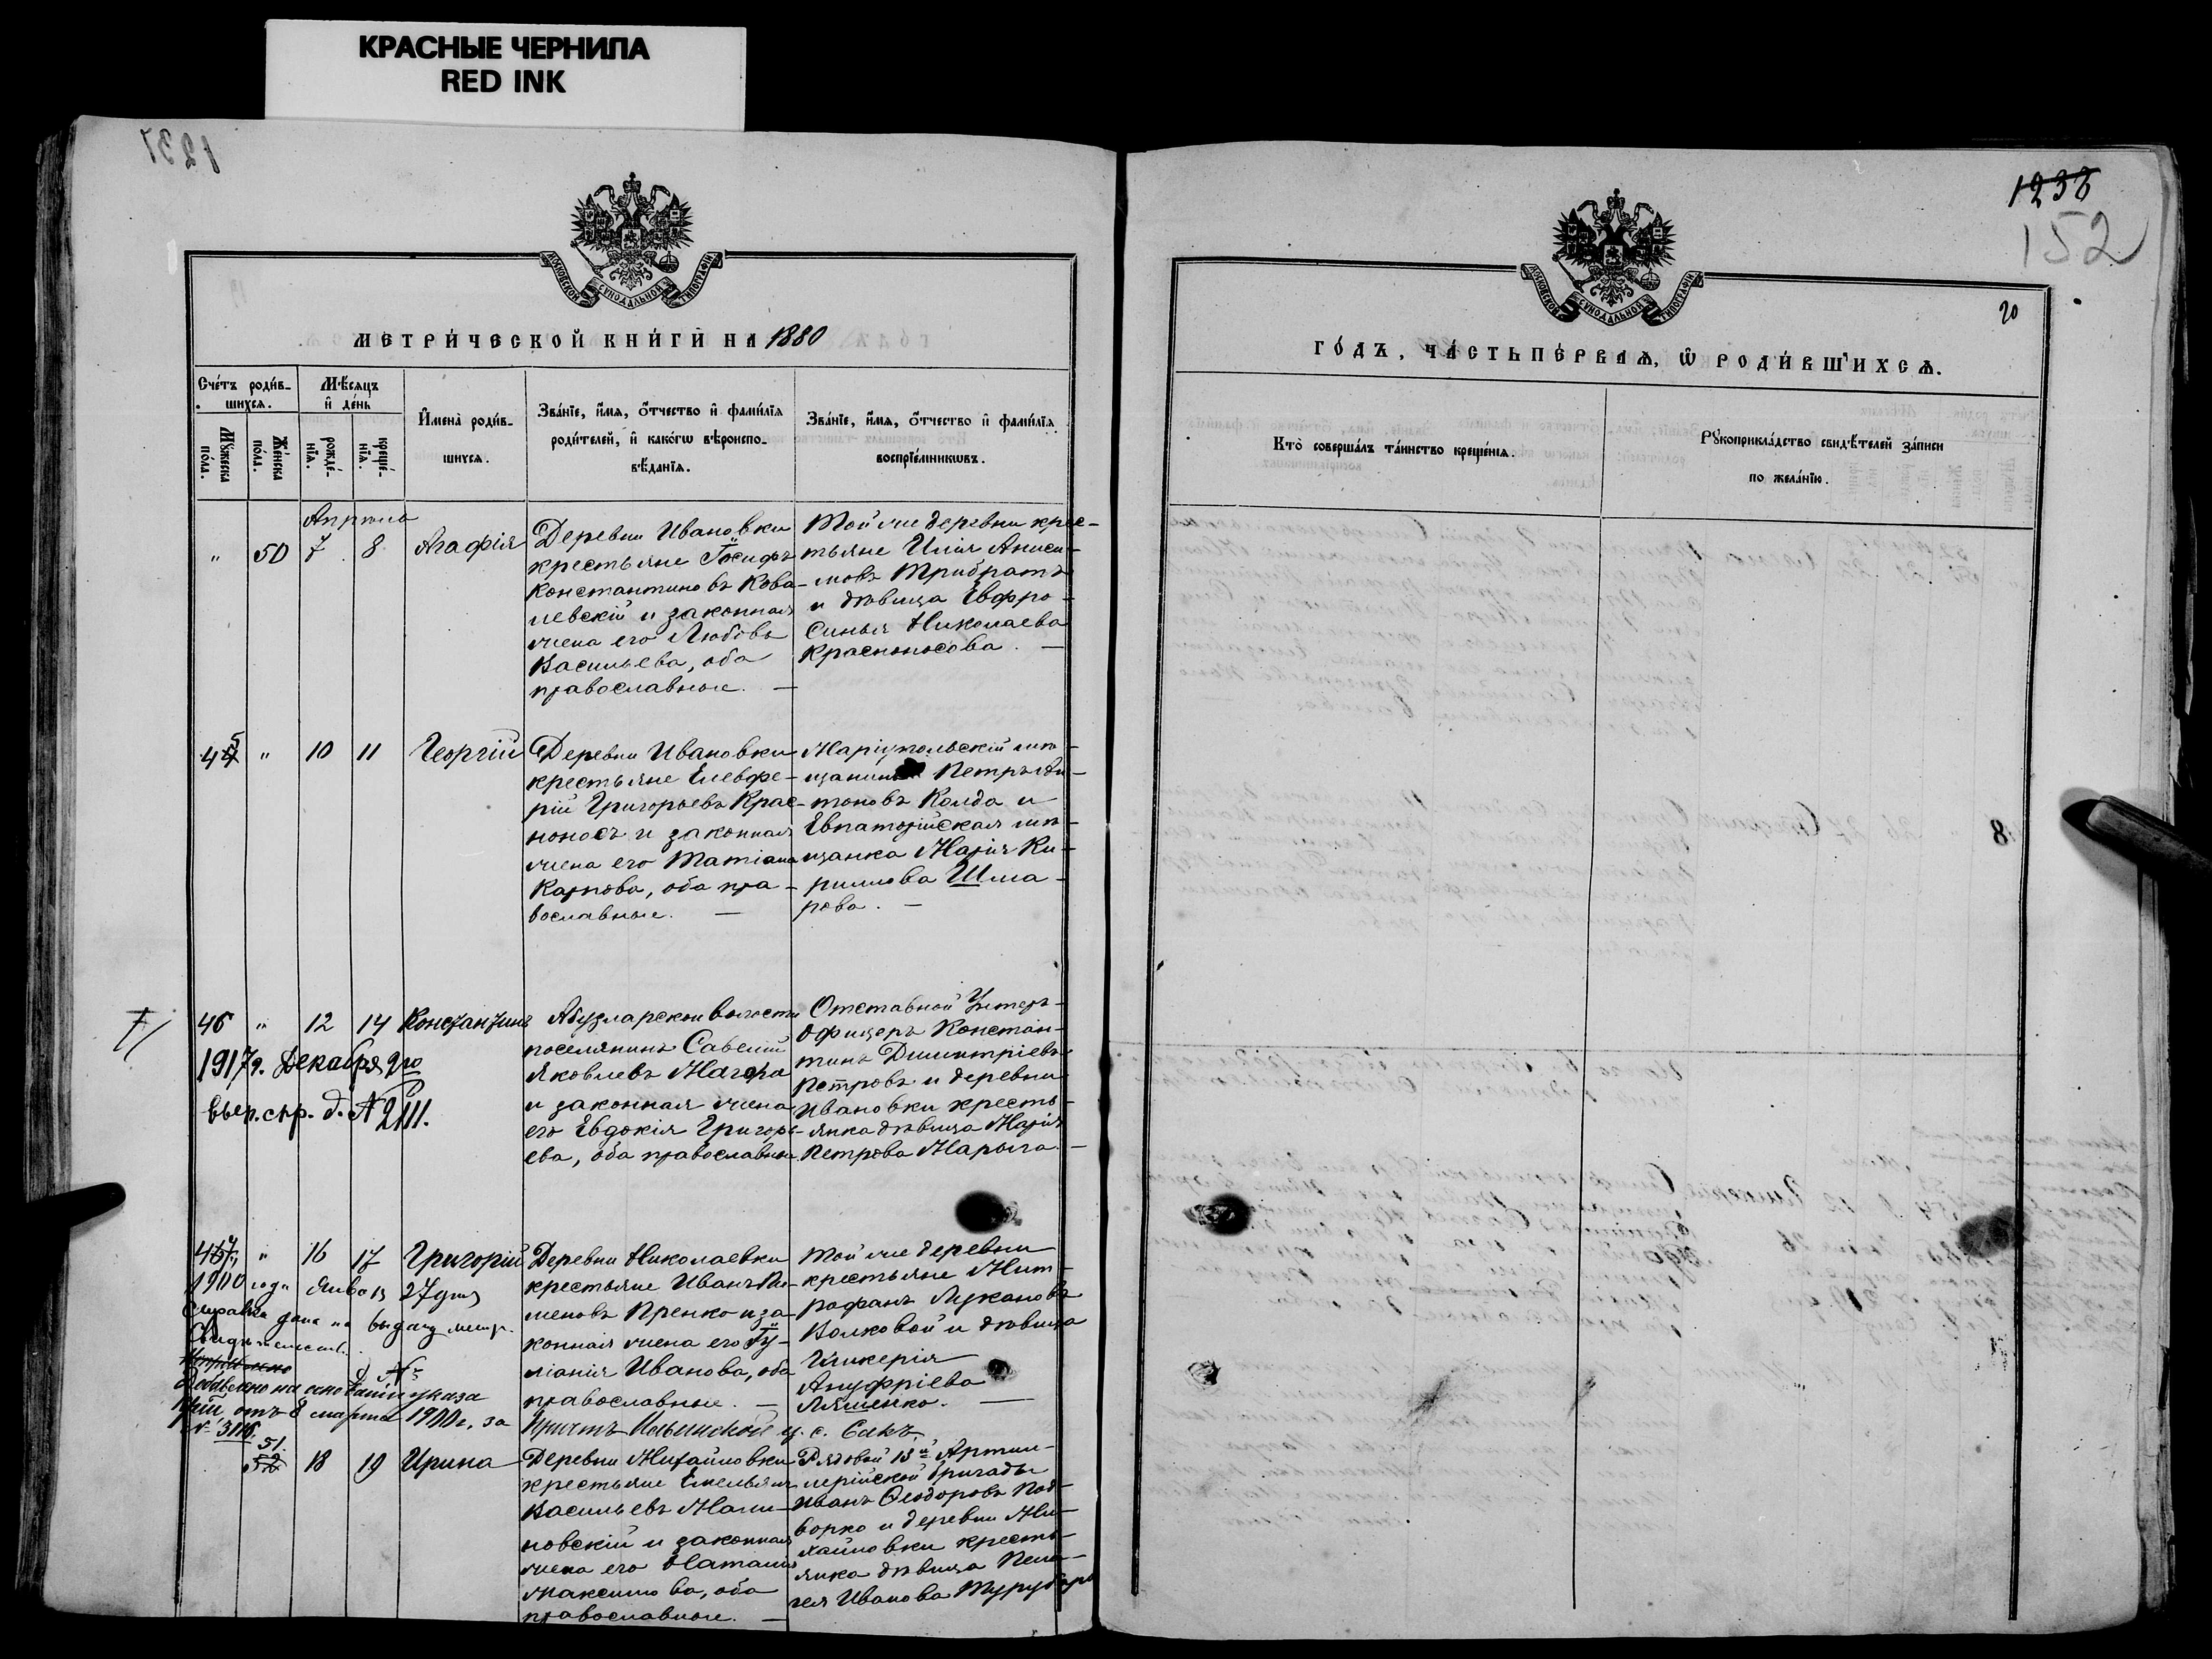 КРАСНЫЕ ЧЕРНИЛА
RED INK
1237
МОСКОВСКОЙ СѴНОДАЛЬНОЙ ТИПОГРАФІИ
МЕТРИ́ЧЕСКОЙ КНИ́ГИ НА 1880
Сче́тъ роди́в-
шихсѧ.
Мѣ́сѧцъ
и҆ де́нь
Мꙋ́жеска
по́ла.
Же́нска
по́ла.
рожде́-
нїѧ.
креще́-
нїѧ.
И҆мена̀ роди́в-
шихсѧ.
Зва́нїе, и҆́мѧ, ѻ҆́тчество и҆ фами́лїѧ
роди́телей, и҆ како́гѡ вѣроиспо-
вѣ́данїѧ.
Зва́нїе, и҆́мѧ, ѻ҆́тчество и҆ фами́лїѧ
воспрїе́мникѡвъ.
Апрѣля
" 50 7 8 Агафія
Деревни Ивановки
крестьяне Іосифъ
Константиновъ Кова-
левскій и законная
жена его Любовь
Васильева, оба
православные. —
Той же деревни крес-
тьяне Илія Аниси-
мовъ Трибратъ
и дѣвица Евфро-
синья Николаева
Красноносова. —
45 " 10 11 Георгій
Деревни Ивановки
крестьяне Елевфе-
рій Григорьевъ Крас-
нонос​ъ и законная
жена его Татіана
Карпова, оба пра-
вославные. —
Маріупольскій мѣ-
щанинъ Петръ Ан-
тоновъ Колда и
Евпаторійская мѣ-
щанка Марія Ки-
риллова Шма-
рова. —
46 " 12 14 Константинъ
1917 г. Декабря 9го
выер. спр. д. № 2111.
Абузларской волости
поселянинъ Савелій
Яковлевъ Нагора
и законная жена
его Евдокія Григорь-
ева, оба православные.
Отставной Унтеръ-
офицеръ Констан-
тинъ Димитріевъ
Петровъ и деревни
Ивановки кресть-
янка дѣвица Марія
Петрова Марыга. —
47 " 16 17 Григорій
1900 года Января 27 дня
Справка дана на выдачу метр.
Свидѣтельств.
Добавлено на основаніи указа
Кон. отъ 8 марта 1900 г. за
№ 3116.
Причтъ Ильинской ц. с. Сакъ
Деревни Николаевки
крестьяне Иванъ Пи-
меновъ Пренко и за-
конная жена его Іу-
ліанія Иванова, оба
православные. —
Той же деревни
крестьяне Мит-
рофанъ Лукановъ
Волковой и дѣвица
Гликерія
Ануфріева
Ляшенко. —
51. 18 19 Ирина
Деревни Михайловки
крестьяне Емельянъ
Васильевъ Мали-
новскій и законная
жена его Наталія
Максимова, оба
православные. —
Рядовой 13й Артил-
лерійской бригады
Иванъ Ѳеодоровъ Под-
ворко и деревни Ми-
хайловки кресть-
янка дѣвица Пела-
гея Иванова Турубара
1238
152
20
МОСКОВСКОЙ СѴНОДАЛЬНОЙ ТИПОГРАФІИ
ГО́ДЪ, ЧА́СТЬ ПЕ́РВАѦ, Ѡ҆ РОДИ́ВШИХСѦ.
Кто̀ соверша́лъ та́инство креще́нїѧ.
Рꙋкоприкла́дство свидѣ́телей за́писи
по жела́нїю.
8